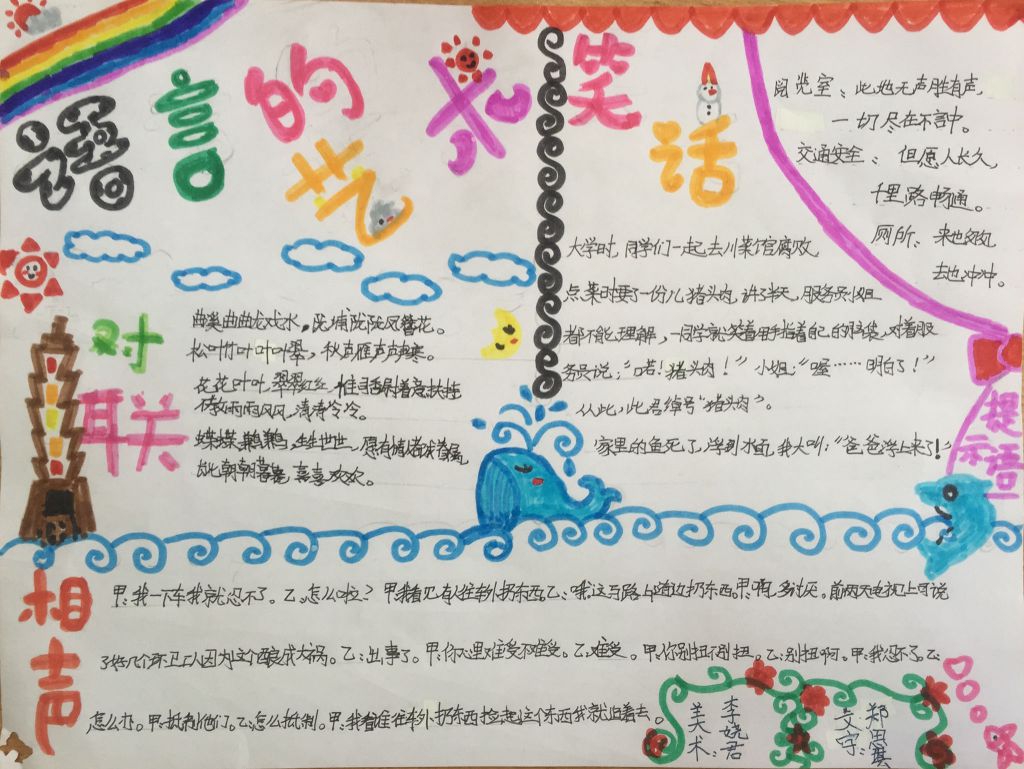 语言的艺术
笑话
阅览室：此处无声胜有声，
一切尽在不言中。
交通安全：但愿人长久，
千里路畅通。
厕所：来也匆匆
去也冲冲。
提示语
大学时，同学们一起去川菜馆腐败，
点菜时要了一份儿猪头肉，讲了半天，服务员小姐
都不能理解，一同学就笑着用手指着自己的脑袋，对着服
务员说：“喏！猪头肉！”小姐：“喔……明白了！”
从此，此君绰号“猪头肉”。
家里的鱼死了，浮到水面，我大叫：“爸爸浮上来了！”
对联
松叶竹叶叶叶翠，秋声雁声声声寒。
花花叶叶，翠翠红红，惟司香尉着意扶持
雨雨风风，清清冷冷。
蝶蝶鹣鹣，生生世世，愿有情人
朝朝暮暮，喜喜欢欢。
相声
甲：我一下车我就忍不了。乙：怎么啦？甲：我看见有人往车外扔东西。乙：哦这马路上随边扔东西。甲：啊，多讨厌。前两天电视上可说
了好几个环卫工人因为这个酿成大祸。乙：出事了。甲：你心里难受不难受。乙：难受。甲：你别扭不别扭。乙：别扭啊。甲：我忍不了。乙：
怎么办。甲：抵制他们。乙：怎么抵制。甲：我看谁往车外扔东西捡起这个东西我就追着去。
美术：李娆君
文字：郑思琪